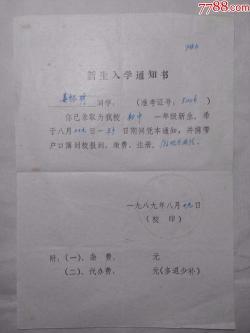 7788.com
新生入学通知书
同学：（准考证号：
你已录取为我校 初中 一年级新生，希
于八月 日 — 日期间凭本通知，并携带
户口簿到校报到、缴费、注册。
一九八九年八月 日
（校 印）
附：（一）、杂 费： 元
（二）、代办费： 元（多退少补）